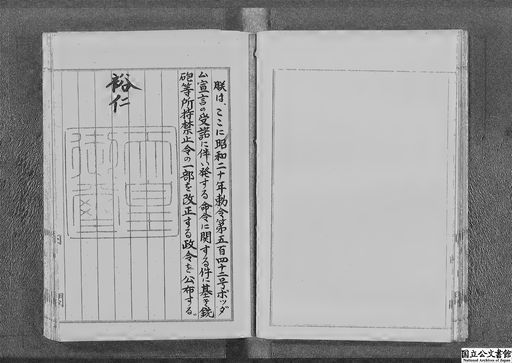 朕は、ここに昭和二十年勅令第五百四十二号ポツダ
ム宣言の受諾に伴い発する命令に関する件に基き、銃
砲等所持禁止令の一部を改正する政令を公布する。
裕仁
天皇
御璽
国立公文書館
National Archives of Japan